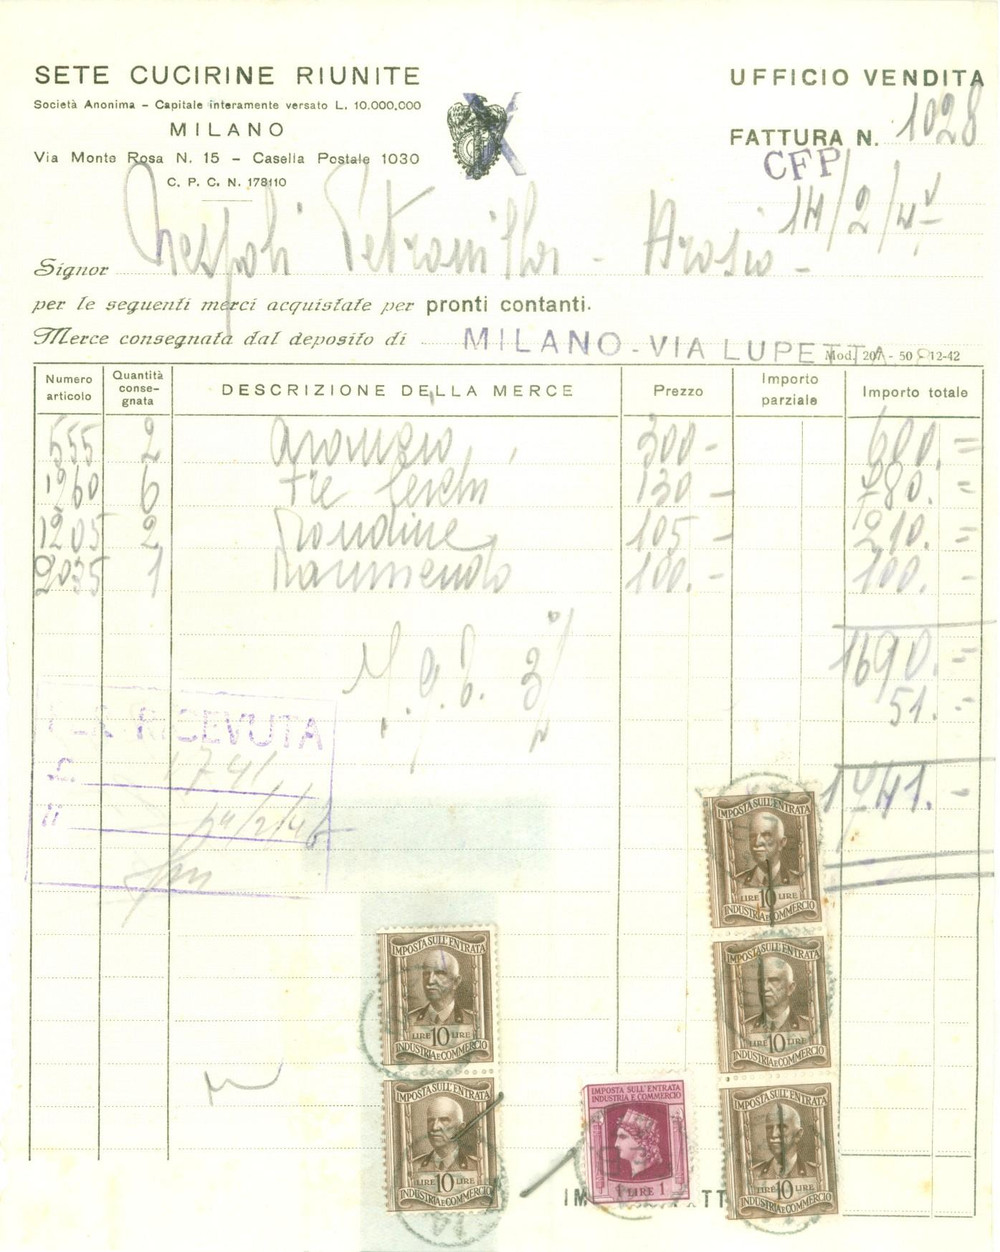 SETE CUCIRINE RIUNITE
Società Anonima – Capitale interamente versato L. 10.000.000
MILANO
Via Monte Rosa N. 15 – Casella Postale 1030
C. P. C. N. 178110
UFFICIO VENDITA
FATTURA N. 1028
CFP
14/2/45
Signor Nespoli Petronilla - Arosio -
per le seguenti merci acquistate per pronti contanti.
Merce consegnata dal deposito di MILANO - VIA LUPETTA
Mod. 207 - 50 12-42
Numero articolo Quantità conse-gnata DESCRIZIONE DELLA MERCE Prezzo Importo parziale Importo totale
555 2 300 - 600. =
1960 6 Tre Cerchi 130 - 780. =
1205 2 Rondine 105 - 210. =
2035 1 100. - 100. =
1690. =
I.G.E. 3% 51. -
1741. -
RICEVUTA
£. 1741
IMPOSTA SULL'ENTRATA
LIRE 10 LIRE
INDUSTRIA E COMMERCIO
IMPOSTA SULL'ENTRATA
LIRE 10 LIRE
INDUSTRIA E COMMERCIO
IMPOSTA SULL'ENTRATA
LIRE 10 LIRE
INDUSTRIA E COMMERCIO
IMPOSTA SULL'ENTRATA
LIRE 10 LIRE
INDUSTRIA E COMMERCIO
IMPOSTA SULL'ENTRATA
INDUSTRIA E COMMERCIO
1 LIRE 1
IMPOSTA SULL'ENTRATA
LIRE 10 LIRE
INDUSTRIA E COMMERCIO